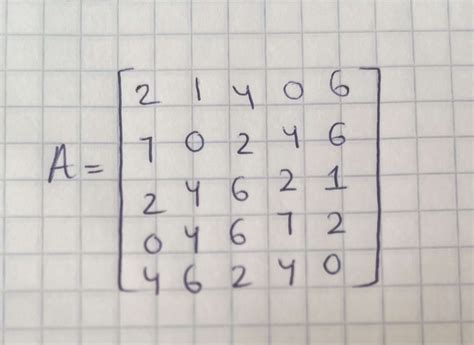 2 1 4 0 6
7 0 2 4 6
A= 2 4 6 2 1
0 4 6 7 2
4 6 2 4 0